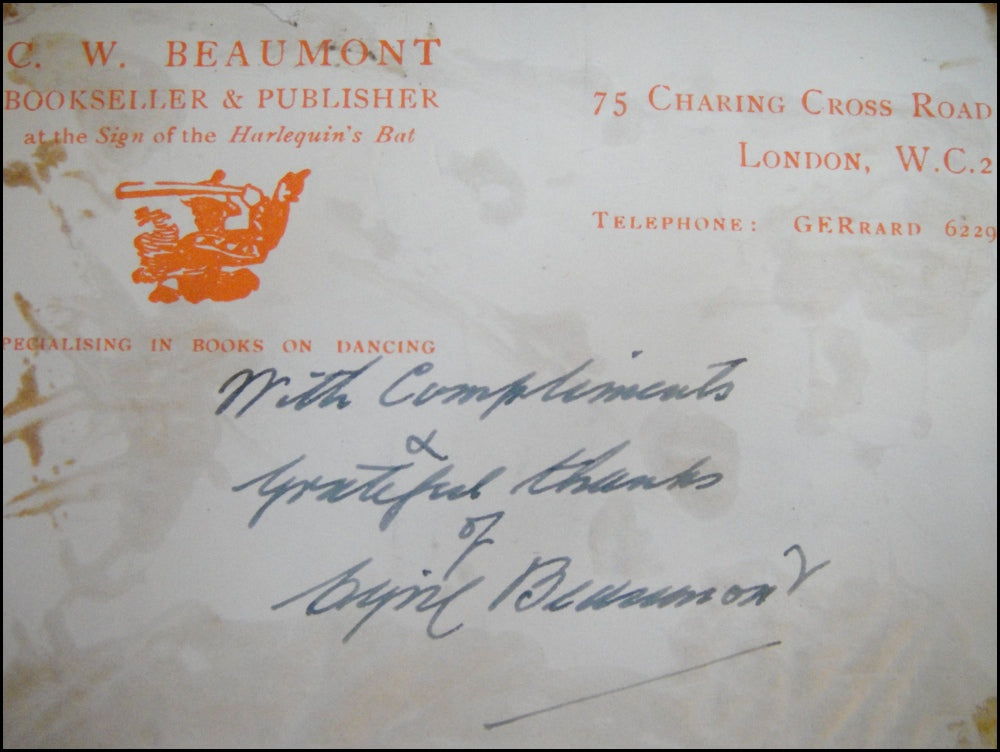 C. W. BEAUMONT
BOOKSELLER & PUBLISHER
at the Sign of the Harlequin's Bat
75 CHARING CROSS ROAD
LONDON, W.C.2
TELEPHONE: GERRARD 6229
PECIALISING IN BOOKS ON DANCING
With Compliments
&
grateful thanks
of
Cyril Beaumont